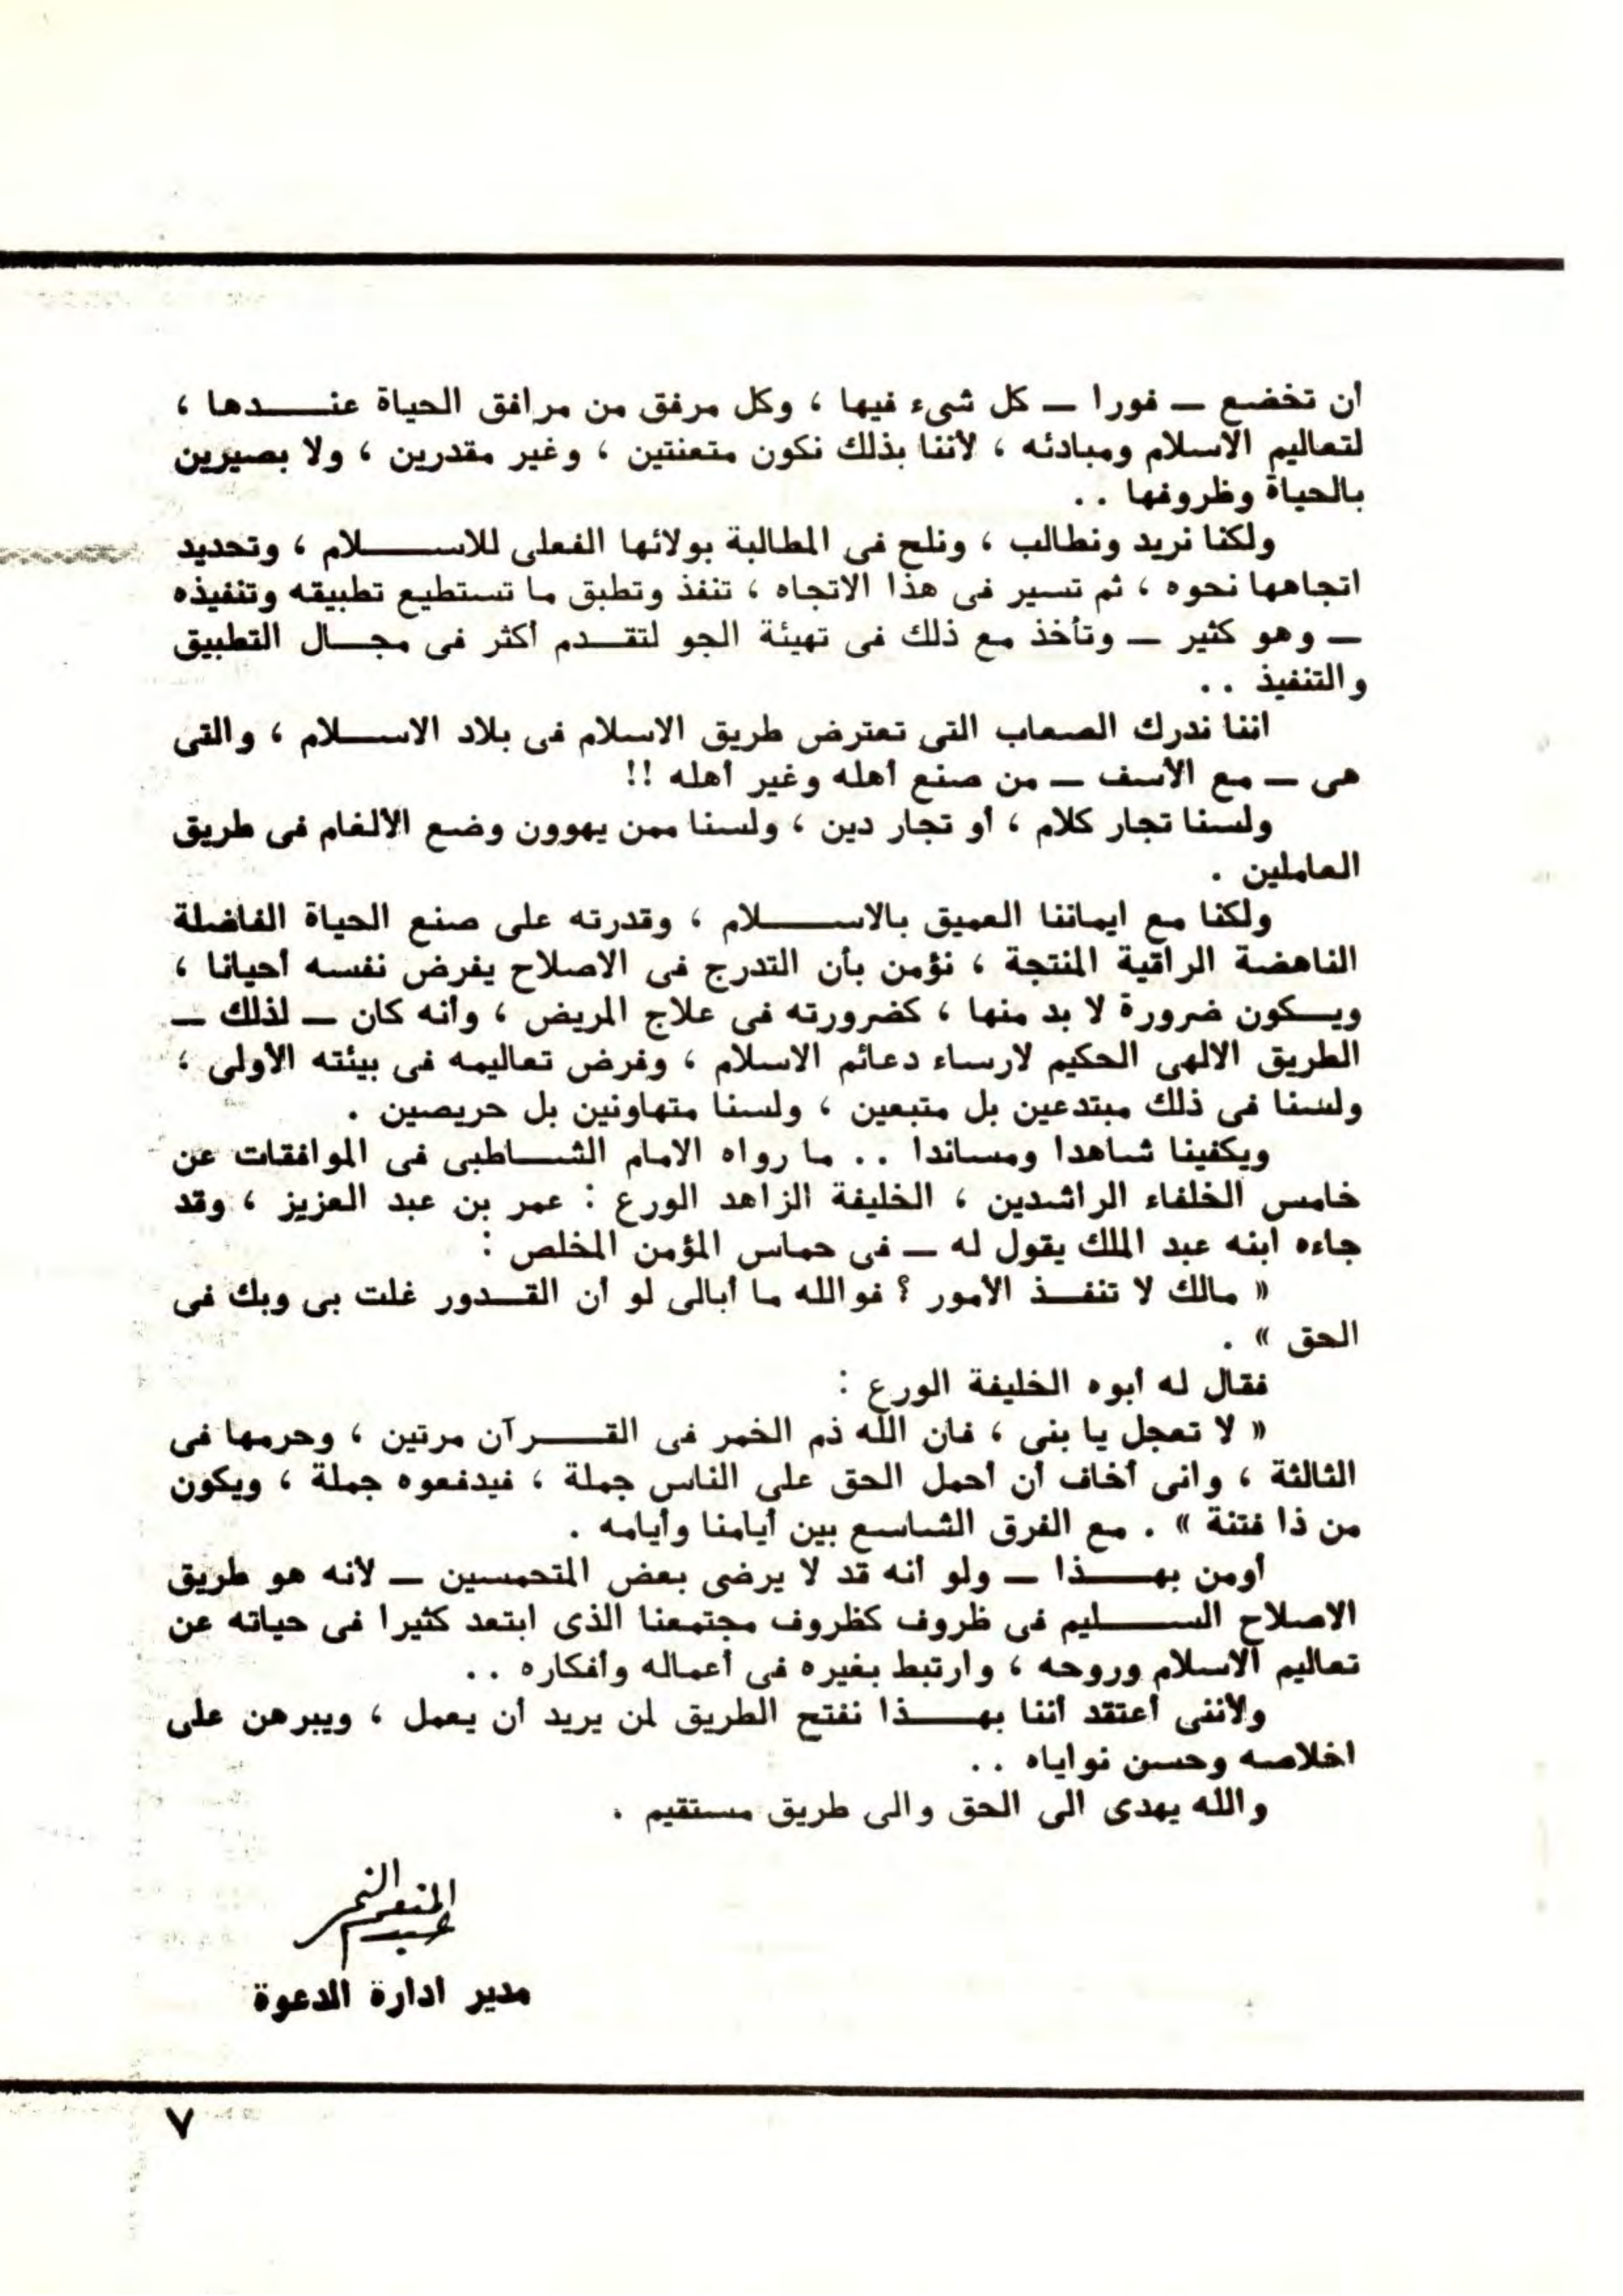 أن تخضع ــ فورا ــ كل شىء فيها ، وكل مرفق من مرافق الحياة عنــدها ،
لتعاليم الاسلام ومبادئه ، لأننا بذلك نكون متعنتين ، وغير مقدرين ، ولا بصيرين
بالحياة وظروفها ..
ولكنا نريد ونطالب ، ونلح فى المطالبة بولائها الفعلى للاســلام ، وتحديد
اتجاهها نحوه ، ثم تسير فى هذا الاتجاه ، تنفذ وتطبق ما تستطيع تطبيقه وتنفيذه
ــ وهو كثير ــ وتأخذ مع ذلك فى تهيئة الجو لتقــدم أكثر فى مجــال التطبيق
والتنفيذ ..
اننا ندرك الصعاب التى تعترض طريق الاسلام فى بلاد الاســلام ، والتى
هى ــ مع الأسف ــ من صنع أهله وغير أهله !!
ولسنا تجار كلام ، أو تجار دين ، ولسنا ممن يهوون وضع الألغام فى طريق
العاملين .
ولكنا مع ايماننا العميق بالاســلام ، وقدرته على صنع الحياة الفاضلة
الناهضة الراقية المنتجة ، نؤمن بأن التدرج فى الاصلاح يفرض نفسه أحيانا ،
ويــكون ضرورة لا بد منها ، كضرورته فى علاج المريض ، وأنه كان ــ لذلك ــ
الطريق الالهى الحكيم لارساء دعائم الاسلام ، وفرض تعاليمه فى بيئته الأولى ،
ولسنا فى ذلك مبتدعين بل متبعين ، ولسنا متهاونين بل حريصين .
ويكفينا شاهدا ومساندا .. ما رواه الامام الشــاطبى فى الموافقات عن
خامس الخلفاء الراشدين ، الخليفة الزاهد الورع : عمر بن عبد العزيز ، وقد
جاءه ابنه عبد الملك يقول له ــ فى حماس المؤمن المخلص :
« مالك لا تنفــذ الأمور ؟ فوالله ما أبالى لو أن القــدور غلت بى وبك فى
الحق » .
فقال له أبوه الخليفة الورع :
« لا تعجل يا بنى ، فان الله ذم الخمر فى القــرآن مرتين ، وحرمها فى
الثالثة ، وانى أخاف أن أحمل الحق على الناس جملة ، فيدفعوه جملة ، ويكون
من ذا فتنة » . مع الفرق الشاسع بين أيامنا وأيامه .
أومن بهــذا ــ ولو أنه قد لا يرضى بعض المتحمسين ــ لأنه هو طريق
الاصلاح الســليم فى ظروف كظروف مجتمعنا الذى ابتعد كثيرا فى حياته عن
تعاليم الاسلام وروحه ، وارتبط بغيره فى أعماله وأفكاره ..
ولأننى أعتقد أننا بهــذا نفتح الطريق لمن يريد أن يعمل ، ويبرهن على
اخلاصه وحسن نواياه ..
والله يهدى الى الحق والى طريق مستقيم .
عبد المنعم النمر
مدير ادارة الدعوة
٧